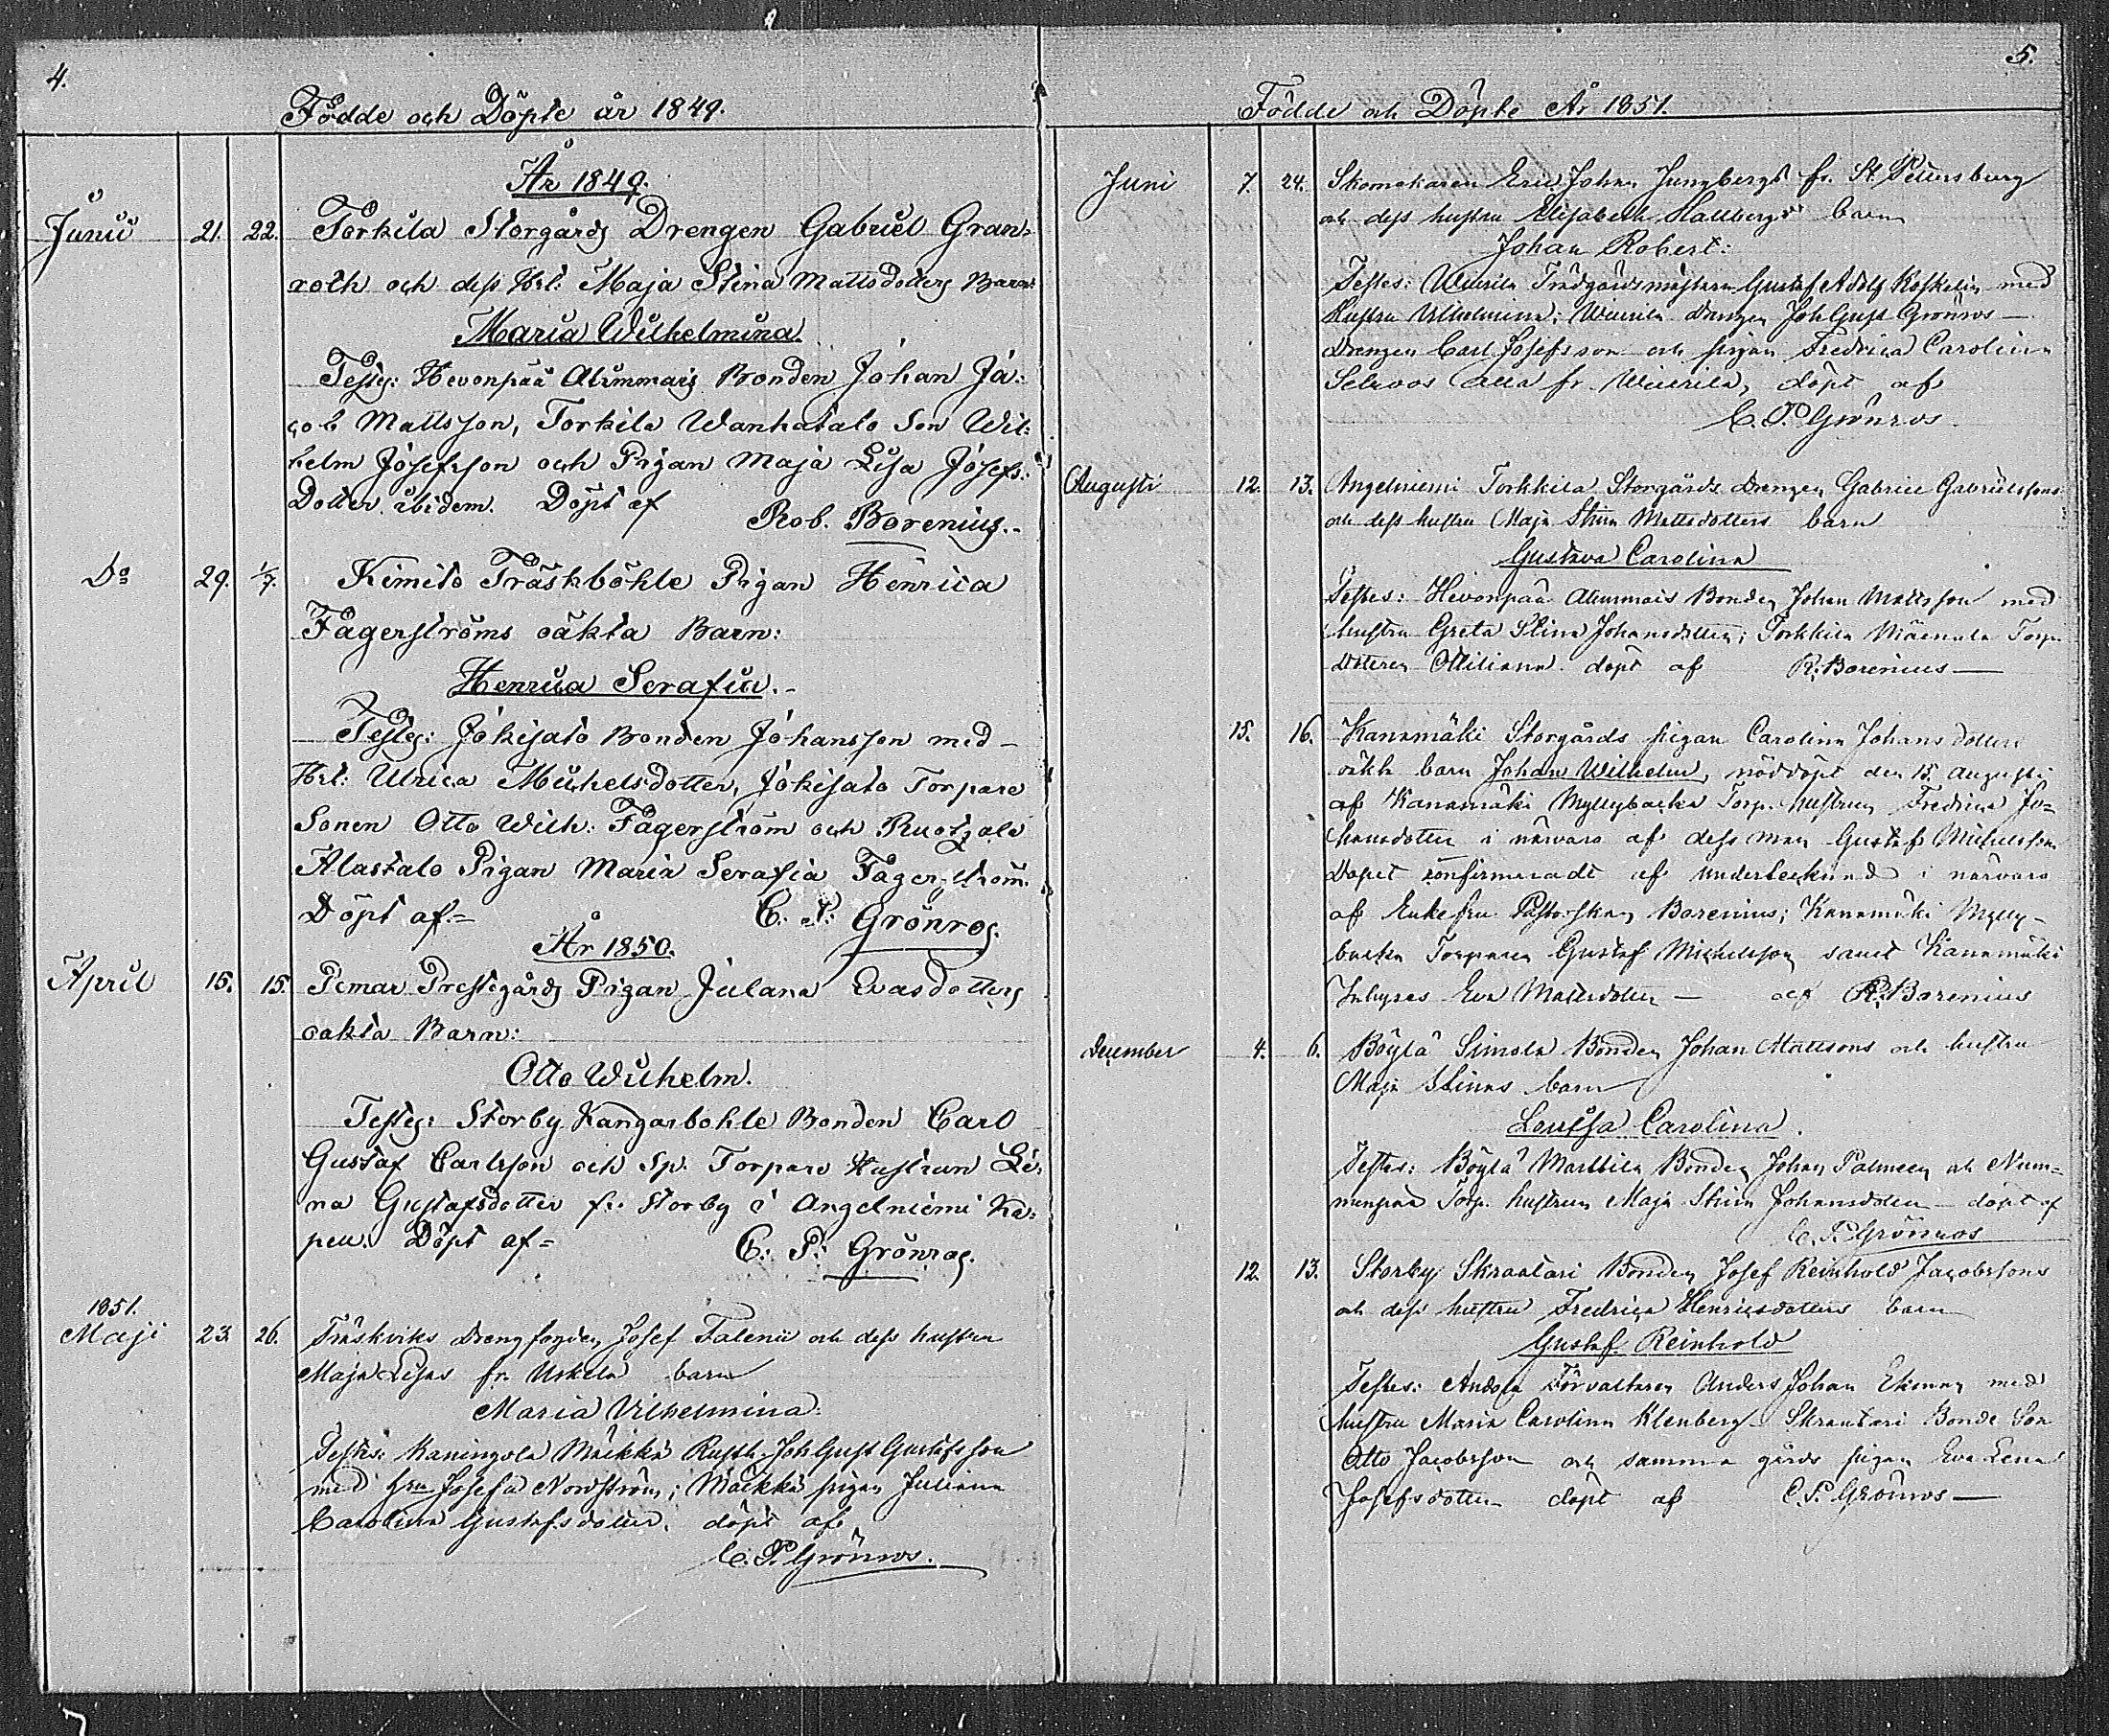 4.
Födde och Döpte år 1849.
År 1849.
Junii 21. 22. Torkila Storgårds Drengen Gabriel Gran-
roth och dess Hst: Maja Stina Mattsdotters Barn:
Maria Wilhelmina.
Testes: Hevonpää Alimmais Bonden Johan Ja-
cob Mattsson, Torkila Wanhatalo Son Wil-
helm Josefsson och Pigan Maja Lisa Josefs-
Dotter ibidem. Döpt af Rob. Borenius.
Do 29. 1/7. Kimito Träskböhle Pigan Henrica
Fagerströms oäkta Barn:
Henrica Serafia.
Testes: Jokisalo Bonden Johansson med
Hst: Ulrica Michelsdotter, Jokisalo Torpare
Sonen Otto Wilh: Fagerström och
Alastalo Pigan Maria Serafia Fagerström.
Döpt af C: P: Grönros.
År 1850.
April 15. 15. Pemar Prestegårds Pigan Juliana Evasdotters
oäkta Barn:
Otto Wilhelm.
Testes: Storby Kangarbohle Bonden Carl
Gustaf Carlsson och Sp: Torpare Hustrun Li-
na Gustafsdotter fr. Storby i Angelniemi Ka-
pell. Döpt af C: P: Grönros.
1851.
Maji 23. 26. Träskviks Drengfogden Josef Falenii och dess hustru
Maja Lisas fr. Uskela barn
Maria Vilhelmina.
Testes: Kaningola Mäkkä Rusth. Joh Gust Gustafsson
med fru Josefa Nordström; Mäkkä pigan Juliana
Carolina Gustafsdotter. döpt af
C. P. Grönros.
5.
Födde och Döpte År 1851.
Juni 7. 24. Skomakaren Eric Johan Jungbergs fr. St. Petersburg
och dess hustru Elisabeth Hallbergs barn
Johan Robert:
Testes: Wiurila Trädgårdsmästaren Gustaf Adolf Koskelin med
Hustru Vilhelmina; Wiurila drengen Joh Gust Grönros
Drengen Carl Josefsson och pigan Fredrica Carolina
alla fr. Wiurila, döpt af
C. P. Grönros
Augusti 12. 13. Angelniemi Torkkila Storgårds Drengen Gabriel Gabrielssons
och dess hustru Maja Stina Mattsdotters barn
Gustava Carolina
Testes: Hevonpää Alimmais Bonden Johan Mattsson med
hustru Greta Stina Johansdotter; Torkkila Mäenala Torp.
dotern Ottiliana. döpt af R. Borenius
15. 16. Kanamäki Storgårds pigan Carolina Johansdotters
oäkta barn Johan Wilhelm, nöddöpt den 15 Augusti
af Kanamäki Myllybacka Torp. hustrun Fredrica Jo-
hansdotter i närvaro af dess man Gustaf Michelsson
Dopet confirmeradt af undertecknad i närvaro
af Enkefru Pastorskan Borenius; Kanamäki Mylly-
backa Torparen Gustaf Michelsson samt Kanamäki
Inhyses Eva Mattsdotter af R. Borenius
december 4. 6. Böylä Simola Bonden Johan Mattsons och hustru
Maja Stinas barn
Lovisa Carolina.
Testes: Böylä Marttila Bonden Johan Palmen och Num-
menpää Torp. hustrun Maja Stina Johansdotter döpt af
C. P. Grönros
12. 13. Storby Skraatari Bonden Josef Reinhold Jacobssons
och dess hustru Fredrica Henricsdotters barn
Gustaf Reinhold
Testes: Andola Förvaltaren Anders Johan Ekman med
hustru Maria Carolina Klenberg Skraatari Bonde Son
Otto Jacobsson och samma gårds pigan Eva Lena
Josefsdotter döpt af C. P. Grönros